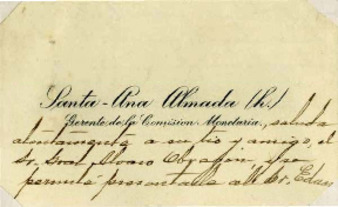 Santa-Ana Almada (h.)
Gerente de la Comision Monetaria., saluda
atentamente a su tio y amigo, el
Sr. Gral. Alvaro Obregón, y se
permite presentarle al Sr.